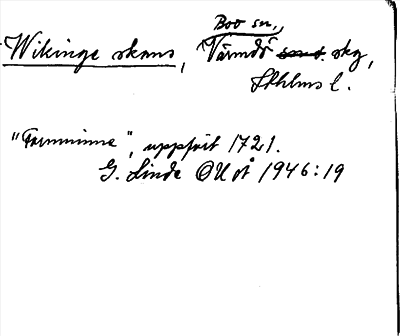 Boo sn,
Wikinge skans, Värmdö skg,
Sthlms l.
"Fornminne", uppfört 1721.
G. Linde OUÅ 1946:19